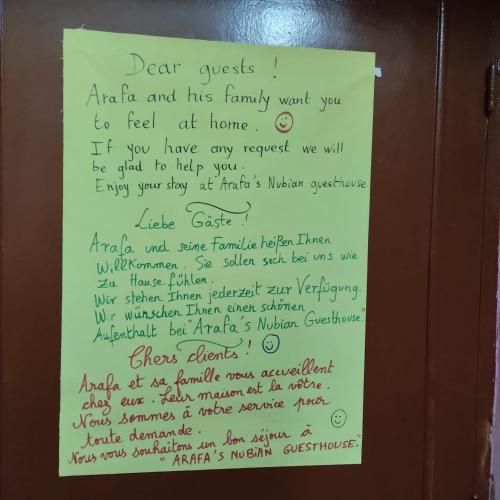 Dear guests !
Arafa and his family want you
to feel at home.
If you have any request we will
be glad to help you.
Enjoy your stay at Arafa's Nubian guesthouse.
Liebe Gäste !
Arafa und seine Familie heißen Ihnen
Willkommen. Sie sollen sich bei uns wie
zu Hause fühlen.
Wir stehen Ihnen jederzeit zur Verfügung.
Wir wünschen Ihnen einen schönen
Aufenthalt bei "Arafa's Nubian Guesthouse."
Chers clients !
Arafa et sa famille vous accueillent
chez eux. Leur maison est la vôtre.
Nous sommes à votre service pour
toute demande.
Nous vous souhaitons un bon séjour à
"ARAFA'S NUBIAN GUESTHOUSE."